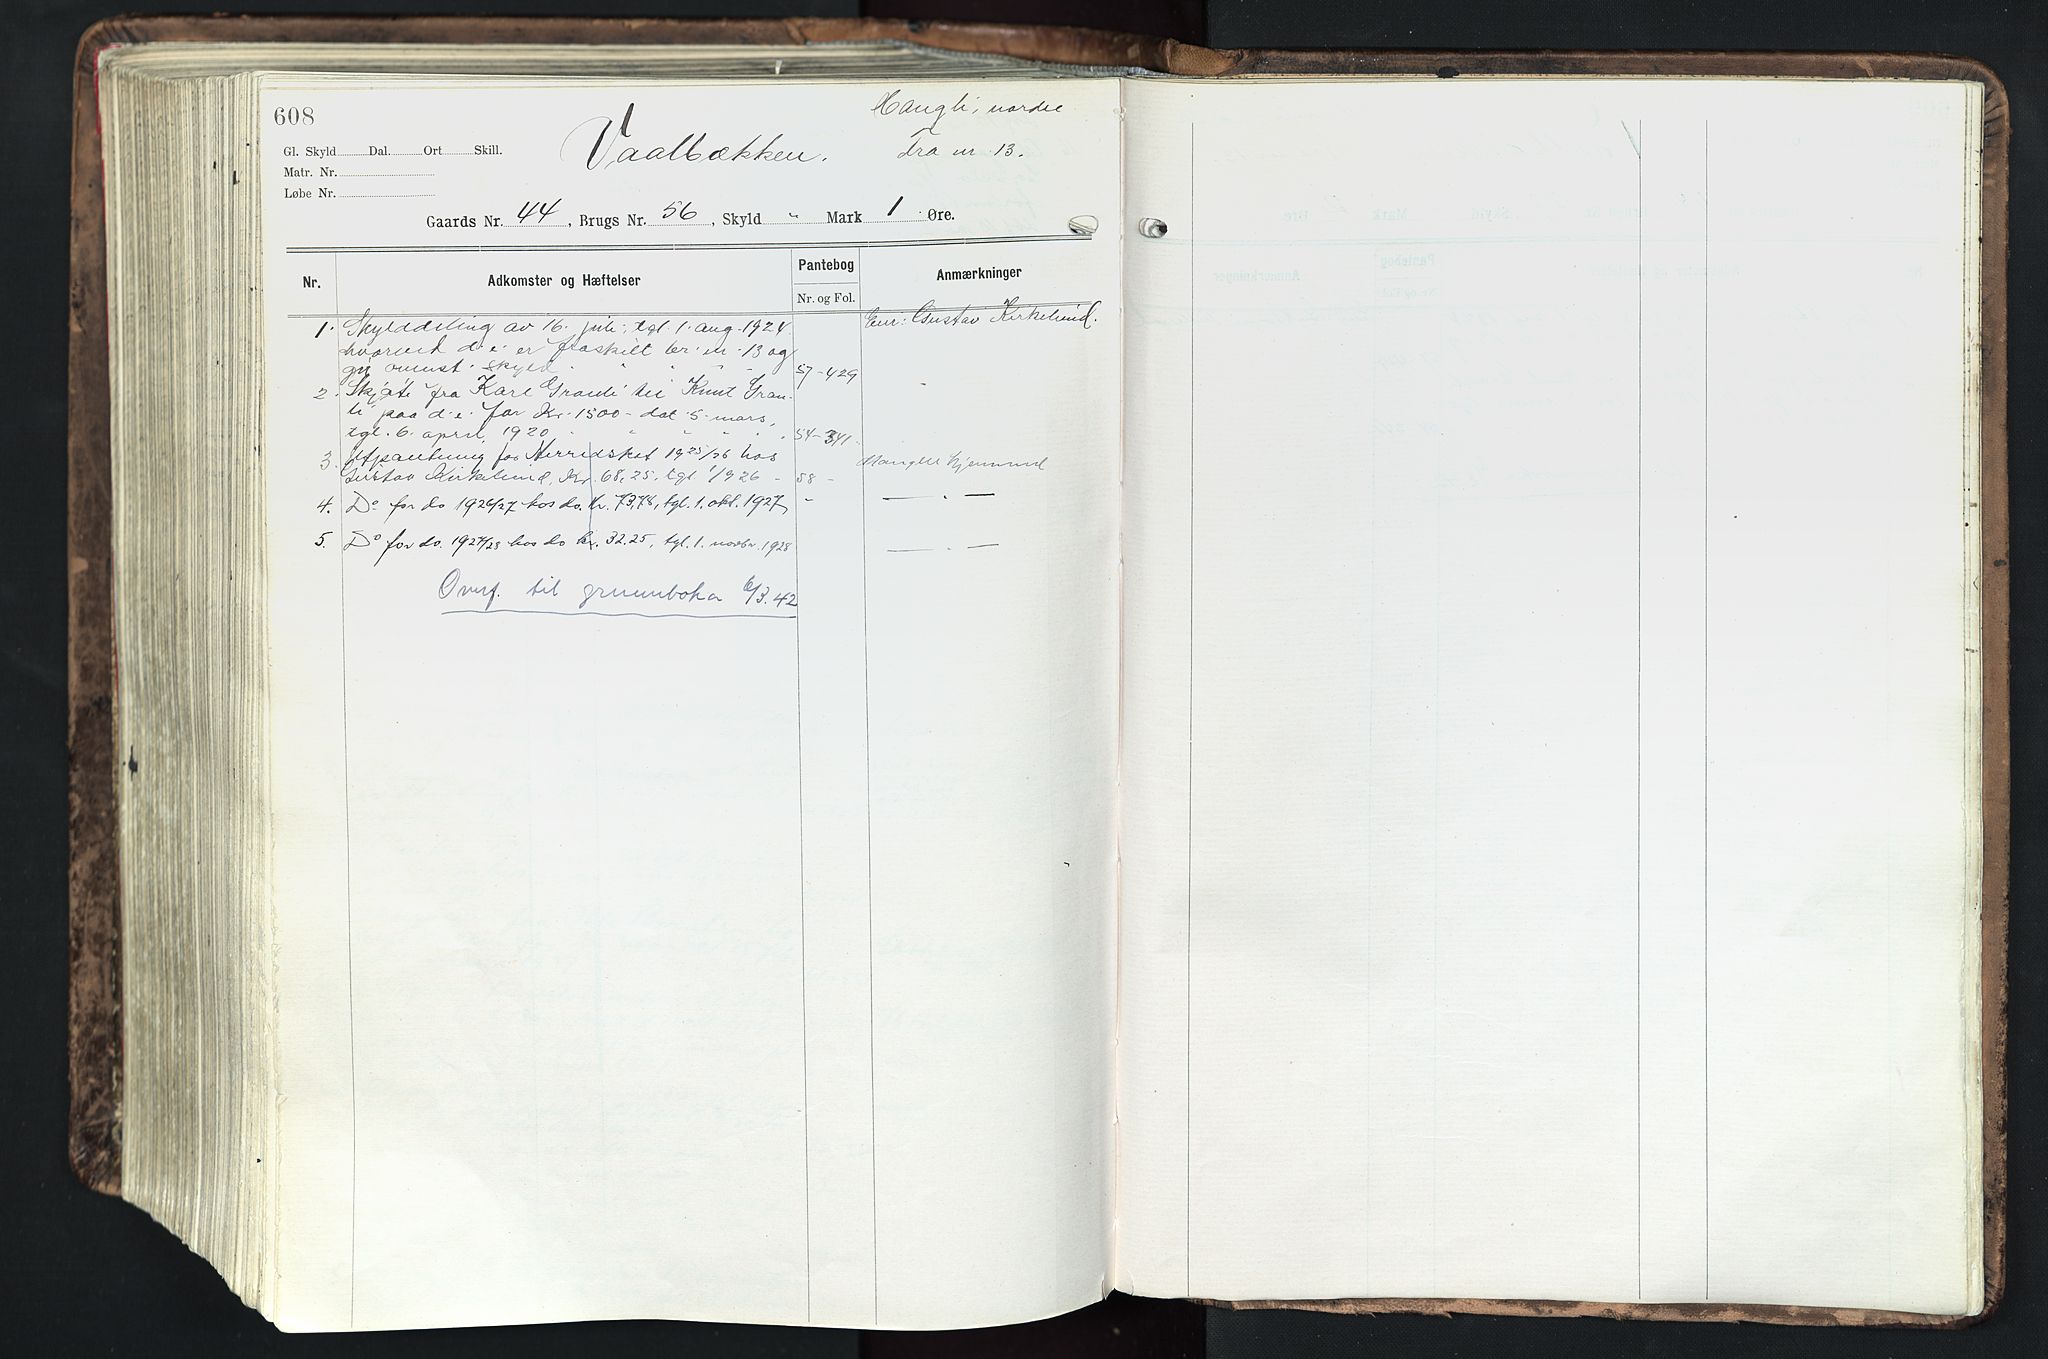 608
Haugli, nordre
Gl. Skyld Dal. Ort Skill.
Vaalbækken.
Fra nr. 13.
Matr. Nr.
Løbe Nr.
Gaards Nr. 44, Brugs Nr. 56, Skyld " Mark 1 Øre.
Nr.
Adkomster og Hæftelser
Pantebog
Nr. og Fol.
Anmærkninger
1. Skylddeling av 16. juli, tgl. 1. aug. 1924 Eier: Gustav Kirkelund.
hvorved d. e. er fraskilt br. nr. 13 og
gi ovenst. skyld " " " 57-429
2. Skjøte fra Karl Granli til Knut Gran-
li paa d. e. for Kr. 1500 - dat. 5. mars,
tgl. 6. april 1920 " " " 54-341
3. Utpantning for Herredskat 1925/26 hos Mangler hjemmel
Gustav Kirkelund, Kr. 68,25, tgl 1/ 1926 - 58 -
4. Do for do 1926/27 hos do. kr. 73,78, tgl. 1. okt. 1927 - — " —
5. Do for do. 1927/28 hos do kr. 32.25, tgl. 1. novbr. 1928 — " —
Overf. til grunnboka 6/3.42